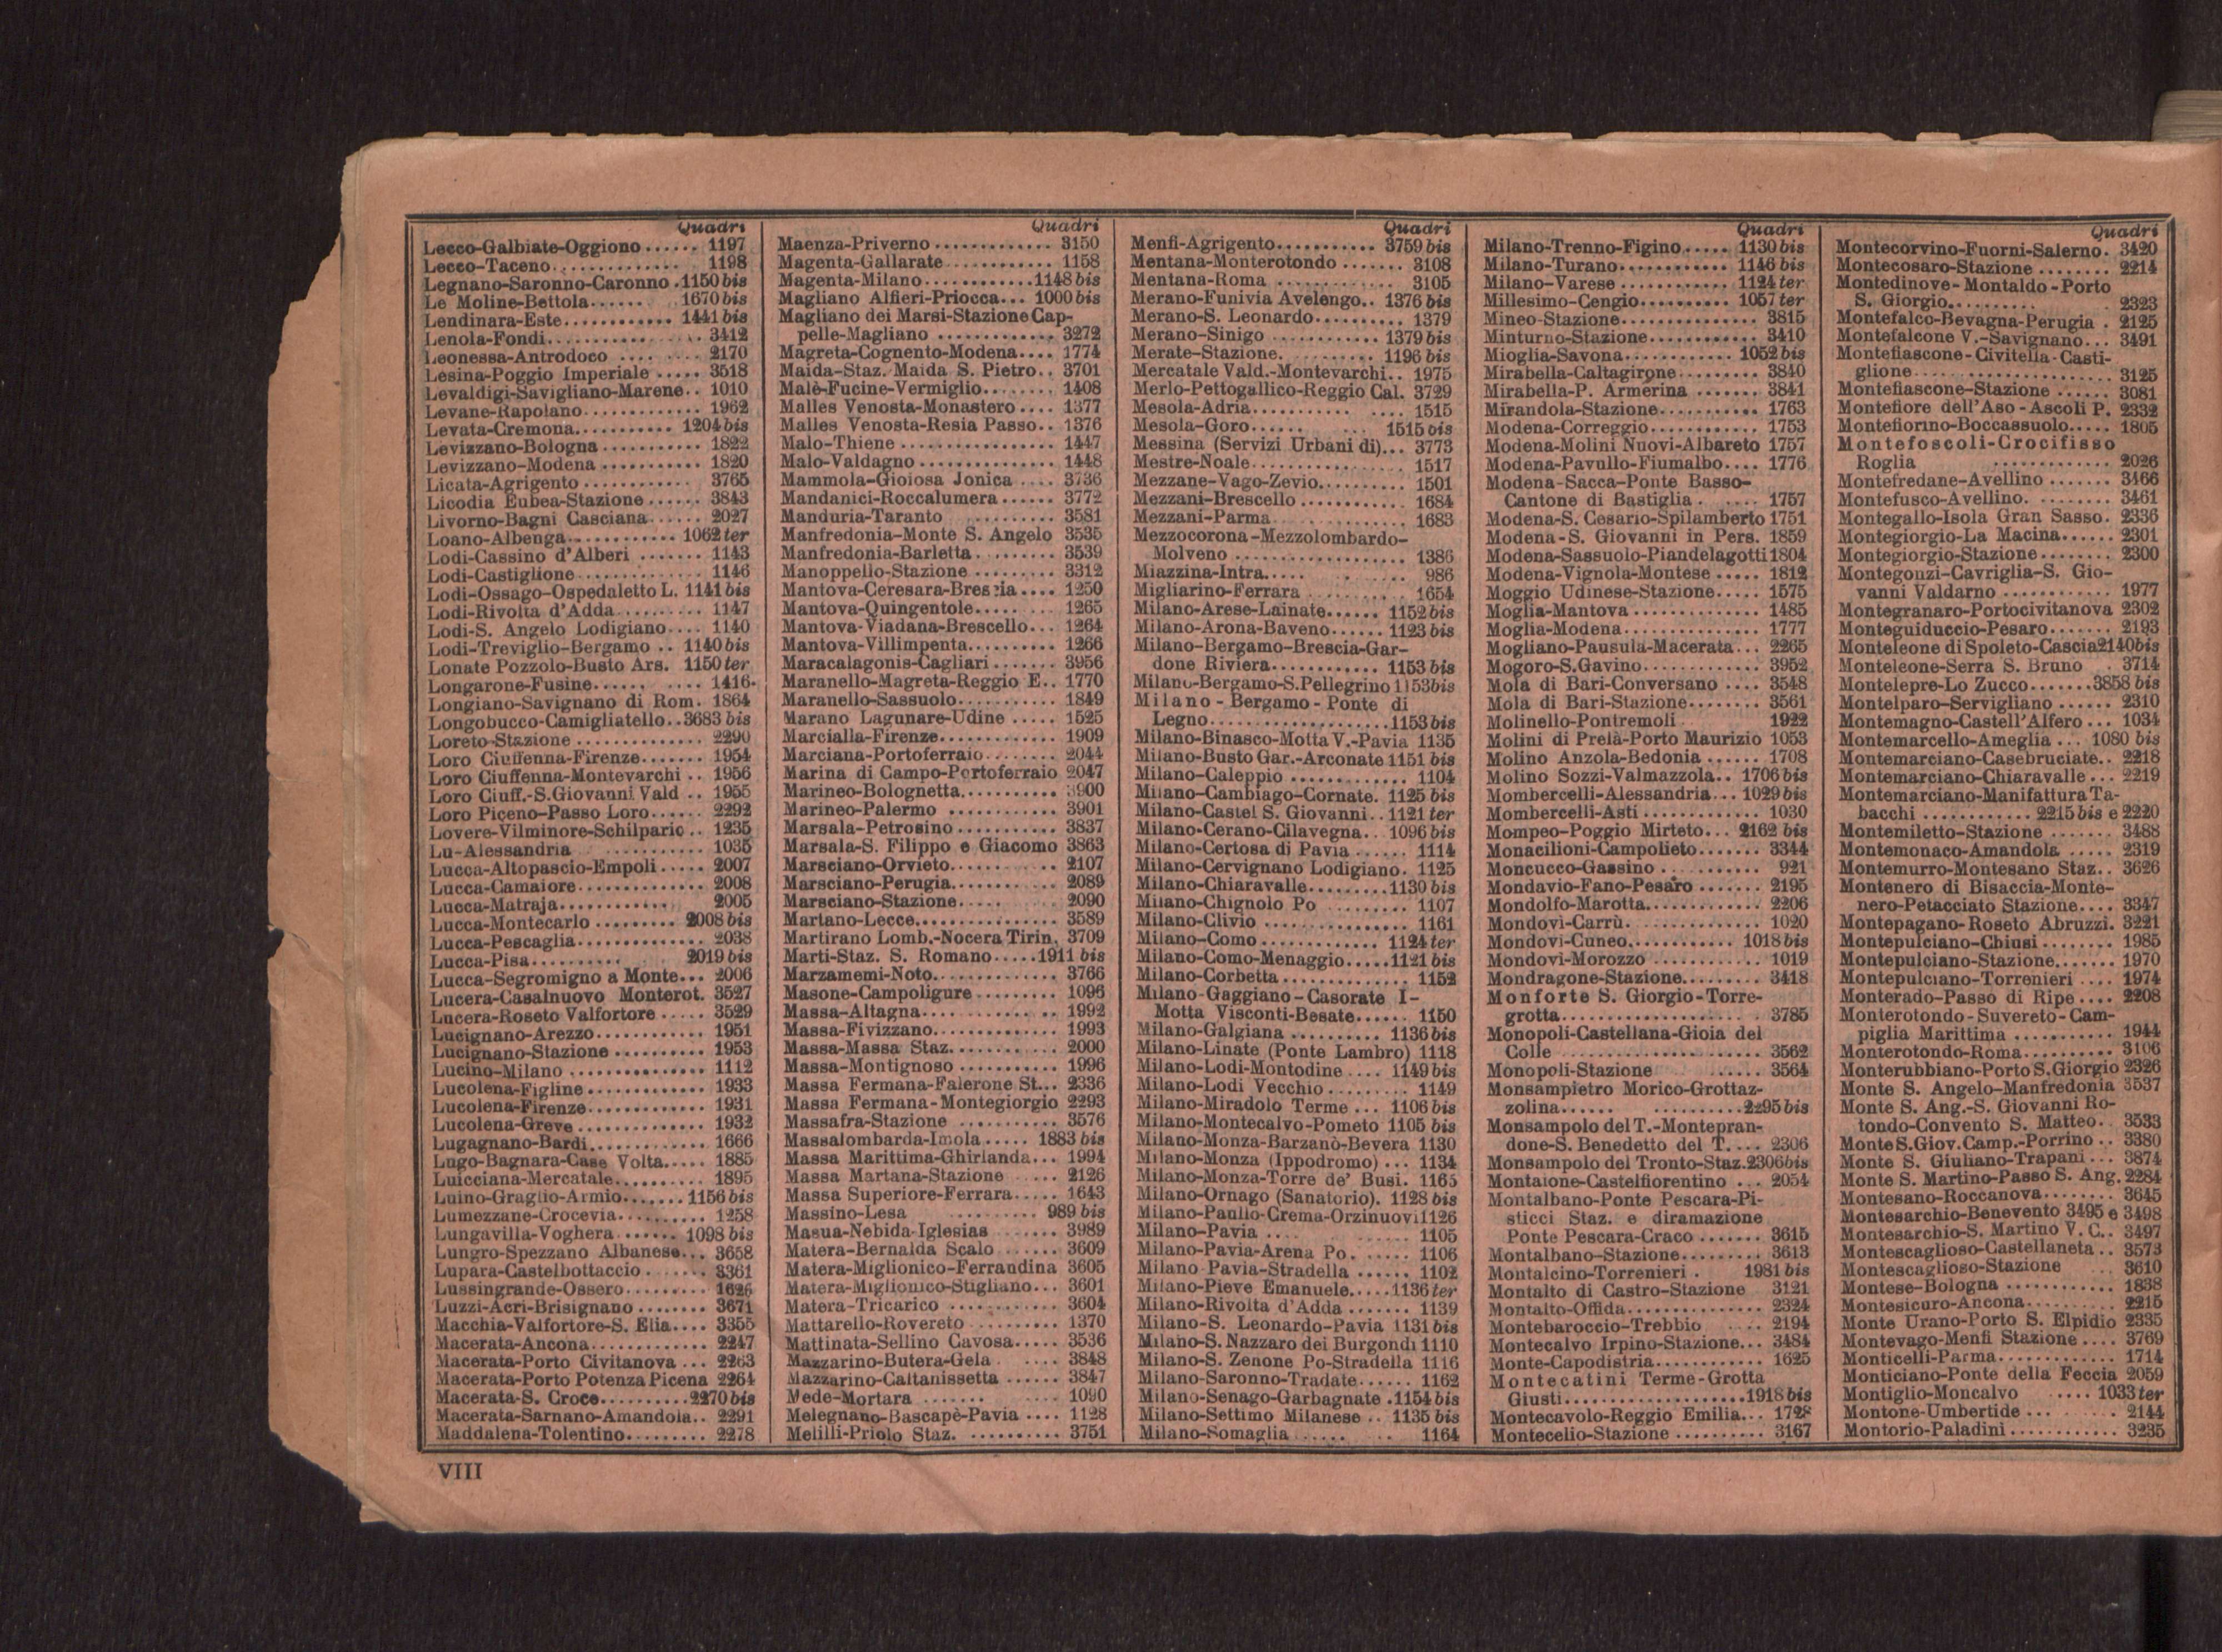 Quadri
Lecco-Galbiate-Oggiono...... 1197
Lecco-Taceno............. 1198
Legnano-Saronno-Caronno .1150 bis
Le Moline-Bettola...... 1670 bis
Lendinara-Este............ 1441 bis
Lenola-Fondi.............. 3412
Leonessa-Antrodoco .... 2170
Lesina-Poggio Imperiale ..... 3518
Levaldigi-Savigliano-Marene.. 1010
Levane-Rapolano............ 1962
Levata-Cremona.......... 1204 bis
Levizzano-Bologna ........... 1822
Levizzano-Modena ........... 1820
Licata-Agrigento ............ 3765
Licodia Eubea-Stazione ...... 3843
Livorno-Bagni Casciana...... 2027
Loano-Albenga........... 1062 ter
Lodi-Cassino d'Alberi ....... 1143
Lodi-Castiglione............. 1146
Lodi-Ossago-Ospedaletto L. 1141 bis
Lodi-Rivolta d'Adda ......... 1147
Lodi-S. Angelo Lodigiano.... 1140
Lodi-Treviglio-Bergamo .. 1140 bis
Lonate Pozzolo-Busto Ars. 1150 ter
Longarone-Fusine..... .... 1416
Longiano-Savignano di Rom. 1864
Longobucco-Camigliatello..3683 bis
Loreto-Stazione ............. 2290
Loro Ciuffenna-Firenze....... 1954
Loro Ciuffenna-Montevarchi .. 1956
Loro Ciuff.-S.Giovanni Vald .. 1955
Loro Piceno-Passo Loro...... 2292
Lovere-Vilminore-Schilpario.. 1235
Lu-Alessandria ........... 1035
Lucca-Altopascio-Empoli..... 2007
Lucca-Camaiore............. 2008
Lucca-Matraja........... 2005
Lucca-Montecarlo ......... 2008 bis
Lucca-Pescaglia............. 2038
Lucca-Pisa.......... 2019 bis
Lucca-Segromigno a Monte... 2006
Lucera-Casalnuovo Monterot. 3527
Lucera-Roseto Valfortore ..... 3529
Lucignano-Arezzo........... 1951
Lucignano-Stazione .......... 1953
Lucino-Milano .............. 1112
Lucolena-Figline ............ 1933
Lucolena-Firenze............ 1931
Lucolena-Greve ............. 1932
Lugagnano-Bardi............ 1666
Lugo-Bagnara-Case Volta..... 1885
Luicciana-Mercatale.......... 1895
Luino-Graglio-Armio....... 1156 bis
Lumezzane-Crocevia.......... 1258
Lungavilla-Voghera ...... 1098 bis
Lungro-Spezzano Albanese... 3658
Lupara-Castelbottaccio ....... 3361
Lussingrande-Ossero......... 1626
Luzzi-Acri-Brisignano ........ 3671
Macchia-Valfortore-S. Elia.... 3355
Macerata-Ancona............ 2247
Macerata-Porto Civitanova ... 2263
Macerata-Porto Potenza Picena 2264
Macerata-S. Croce..........2270 bis
Macerata-Sarnano-Amandola.. 2291
Maddalena-Tolentino......... 2278
Quadri
Maenza-Priverno ............. 3150
Magenta-Gallarate............ 1158
Magenta-Milano............1148 bis
Magliano Alfieri-Priocca... 1000 bis
Magliano dei Marsi-Stazione Cap-
pelle-Magliano ............. 3272
Magreta-Cognento-Modena.... 1774
Maida-Staz. Maida S. Pietro.. 3701
Malè-Fucine-Vermiglio........ 1408
Malles Venosta-Monastero .... 1377
Malles Venosta-Resia Passo.. 1376
Malo-Thiene ................. 1447
Malo-Valdagno ............... 1448
Mammola-Gioiosa Jonica .... 3736
Mandanici-Roccalumera ...... 3772
Manduria-Taranto .......... 3581
Manfredonia-Monte S. Angelo 3535
Manfredonia-Barletta......... 3539
Manoppello-Stazione ......... 3312
Mantova-Ceresara-Brescia.... 1250
Mantova-Quingentole......... 1265
Mantova-Viadana-Brescello... 1264
Mantova-Villimpenta.......... 1266
Maracalagonis-Cagliari....... 3956
Maranello-Magreta-Reggio E.. 1770
Maranello-Sassuolo........... 1849
Marano Lagunare-Udine ..... 1525
Marcialla-Firenze............. 1909
Marciana-Portoferraio........ 2044
Marina di Campo-Portoferraio 2047
Marineo-Bolognetta.......... 3900
Marineo-Palermo ............ 3901
Marsala-Petrosino ........... 3837
Marsala-S. Filippo e Giacomo 3863
Marsciano-Orvieto............ 2107
Marsciano-Perugia............ 2089
Marsciano-Stazione..... 2090
Martano-Lecce................ 3589
Martirano Lomb.-Nocera Tirin. 3709
Marti-Staz. S. Romano.....1911 bis
Marzamemi-Noto............. 3766
Masone-Campoligure ......... 1096
Massa-Altagna............... 1992
Massa-Fivizzano............. 1993
Massa-Massa Staz............ 2000
Massa-Montignoso ........... 1996
Massa Fermana-Falerone St... 2336
Massa Fermana-Montegiorgio 2293
Massafra-Stazione ........... 3576
Massalombarda-Imola..... 1883 bis
Massa Marittima-Ghirlanda... 1994
Massa Martana-Stazione ..... 2126
Massa Superiore-Ferrara..... 1643
Massino-Lesa .......... 989 bis
Masua-Nebida-Iglesias ....... 3989
Matera-Bernalda Scalo ....... 3609
Matera-Miglionico-Ferrandina 3605
Matera-Miglionico-Stigliano... 3601
Matera-Tricarico ............ 3604
Mattarello-Rovereto .......... 1370
Mattinata-Sellino Cavosa..... 3536
Mazzarino-Butera-Gela ..... 3848
Mazzarino-Caltanissetta ...... 3847
Mede-Mortara ....... 1090
Melegnano-Bascapè-Pavia .... 1128
Melilli-Priolo Staz. .......... 3751
Quadri
Menfi-Agrigento........... 3759 bis
Mentana-Monterotondo ....... 3108
Mentana-Roma ............. 3105
Merano-Funivia Avelengo.. 1376 bis
Merano-S. Leonardo.......... 1379
Merano-Sinigo ............ 1379 bis
Merate-Stazione. ......... 1196 bis
Mercatale Vald.-Montevarchi.. 1975
Merlo-Pettogallico-Reggio Cal. 3729
Mesola-Adria........... .... 1515
Mesola-Goro...... ... 1515 bis
Messina (Servizi Urbani di)... 3773
Mestre-Noale................. 1517
Mezzane-Vago-Zevio.......... 1501
Mezzani-Brescello ............ 1684
Mezzani-Parma............... 1683
Mezzocorona-Mezzolombardo-
Molveno .................. 1386
Miazzina-Intra..... ..... 986
Migliarino-Ferrara ........... 1654
Milano-Arese-Lainate...... 1152 bis
Milano-Arona-Baveno...... 1123 bis
Milano-Bergamo-Brescia-Gar-
done Riviera............ 1153 bis
Milano-Bergamo-S.Pellegrino 1153bis
Milano-Bergamo-Ponte di
Legno...................1153 bis
Milano-Binasco-Motta V.-Pavia 1135
Milano-Busto Gar.-Arconate 1151 bis
Milano-Caleppio ............. 1104
Milano-Cambiago-Cornate. 1125 bis
Milano-Castel S. Giovanni.. 1121 ter
Milano-Cerano-Cilavegna.. 1096 bis
Milano-Certosa di Pavia ...... 1114
Milano-Cervignano Lodigiano. 1125
Milano-Chiaravalle.........1130 bis
Milano-Chignolo Po ......... 1107
Milano-Clivio ............... 1161
Milano-Como ............. 1124 ter
Milano-Como-Menaggio.....1121 bis
Milano-Corbetta.............. 1152
Milano-Gaggiano-Casorate I-
Motta Visconti-Besate...... 1150
Milano-Galgiana .......... 1136 bis
Milano-Linate (Ponte Lambro) 1118
Milano-Lodi-Montodine .... 1149 bis
Milano-Lodi Vecchio ......... 1149
Milano-Miradolo Terme ... 1106 bis
Milano-Montecalvo-Pometo 1105 bis
Milano-Monza-Barzanò-Bevera 1130
Milano-Monza (Ippodromo) ... 1134
Milano-Monza-Torre de' Busi. 1165
Milano-Ornago (Sanatorio). 1128 bis
Milano-Paullo-Crema-Orzinuovi1126
Milano-Pavia .... .... 1105
Milano-Pavia-Arena Po. ..... 1106
Milano-Pavia-Stradella ...... 1102
Milano-Pieve Emanuele.....1136 ter
Milano-Rivolta d'Adda ....... 1139
Milano-S. Leonardo-Pavia 1131 bis
Milano-S. Nazzaro dei Burgondi 1110
Milano-S. Zenone Po-Stradella 1116
Milano-Saronno-Tradate...... 1162
Milano-Senago-Garbagnate .1154 bis
Milano-Settimo Milanese .. 1135 bis
Milano-Somaglia ...... .. 1164
Quadri
Milano-Trenno-Figino..... 1130 bis
Milano-Turano............ 1146 bis
Milano-Varese ............ 1124 ter
Millesimo-Cengio.......... 1057 ter
Mineo-Stazione............... 3815
Minturno-Stazione............ 3410
Mioglia-Savona........... 1052 bis
Mirabella-Caltagirone......... 3840
Mirabella-P. Armerina ....... 3841
Mirandola-Stazione........... 1763
Modena-Correggio............ 1753
Modena-Molini Nuovi-Albareto 1757
Modena-Pavullo-Fiumalbo.... 1776
Modena-Sacca-Ponte Basso-
Cantone di Bastiglia ...... 1757
Modena-S. Cesario-Spilamberto 1751
Modena-S. Giovanni in Pers. 1859
Modena-Sassuolo-Piandelagotti 1804
Modena-Vignola-Montese ..... 1812
Moggio Udinese-Stazione..... 1575
Moglia-Mantova .............. 1485
Moglia-Modena............... 1777
Mogliano-Pausula-Macerata... 2265
Mogoro-S.Gavino............. 3952
Mola di Bari-Conversano .... 3548
Mola di Bari-Stazione........ 3561
Molinello-Pontremoli 1922
Molini di Prelà-Porto Maurizio 1053
Molino Anzola-Bedonia ...... 1708
Molino Sozzi-Valmazzola.. 1706 bis
Mombercelli-Alessandria... 1029 bis
Mombercelli-Asti ............. 1030
Mompeo-Poggio Mirteto... 2162 bis
Monacilioni-Campolieto....... 3344
Moncucco-Gassino ........... 921
Mondavio-Fano-Pesaro ....... 2195
Mondolfo-Marotta............ 2206
Mondovì-Carrù............... 1020
Mondovì-Cuneo........... 1018 bis
Mondovì-Morozzo ............ 1019
Mondragone-Stazione......... 3418
Monforte S. Giorgio-Torre-
grotta..................... 3785
Monopoli-Castellana-Gioia del
Colle ..................... 3562
Monopoli-Stazione ...... 3564
Monsampietro Morico-Grottaz-
zolina...... ..........2295 bis
Monsampolo del T.-Montepran-
done-S. Benedetto del T.... 2306
Monsampolo del Tronto-Staz.2306bis
Montaione-Castelfiorentino ... 2054
Montalbano-Ponte Pescara-Pi-
sticci Staz. e diramazione
Ponte Pescara-Craco ....... 3615
Montalbano-Stazione......... 3613
Montalcino-Torrenieri . 1981 bis
Montalto di Castro-Stazione 3121
Montalto-Offida............... 2324
Montebaroccio-Trebbio .... 2194
Montecalvo Irpino-Stazione... 3484
Monte-Capodistria............ 1625
Montecatini Terme-Grotta
Giusti....................1918 bis
Montecavolo-Reggio Emilia... 1728
Montecelio-Stazione .......... 3167
Quadri
Montecorvino-Fuorni-Salerno. 3420
Montecosaro-Stazione ........ 2214
Montedinove-Montaldo-Porto
S. Giorgio.......... . 2323
Montefalco-Bevagna-Perugia . 2125
Montefalcone V.-Savignano... 3491
Montefiascone-Civitella-Casti-
glione..................... 3125
Montefiascone-Stazione ...... 3081
Montefiore dell'Aso-Ascoli P. 2332
Montefiorino-Boccassuolo..... 1805
Montefoscoli-Crocifisso
Roglia ............ 2026
Montefredane-Avellino ....... 3466
Montefusco-Avellino. ........ 3461
Montegallo-Isola Gran Sasso. 2336
Montegiorgio-La Macina...... 2301
Montegiorgio-Stazione........ 2300
Montegonzi-Cavriglia-S. Gio-
vanni Valdarno ............ 1977
Montegranaro-Portocivitanova 2302
Monteguiduccio-Pesaro....... 2193
Monteleone di Spoleto-Cascia2140bis
Monteleone-Serra S. Bruno . 3714
Montelepre-Lo Zucco.......3858 bis
Montelparo-Servigliano ...... 2310
Montemagno-Castell'Alfero ... 1034
Montemarcello-Ameglia ... 1080 bis
Montemarciano-Casebruciate.. 2218
Montemarciano-Chiaravalle... 2219
Montemarciano-Manifattura Ta-
bacchi ............ 2215 bis e 2220
Montemiletto-Stazione ....... 3488
Montemonaco-Amandola ..... 2319
Montemurro-Montesano Staz.. 3626
Montenero di Bisaccia-Monte-
nero-Petacciato Stazione.... 3347
Montepagano-Roseto Abruzzi. 3221
Montepulciano-Chiusi ........ 1985
Montepulciano-Stazione....... 1970
Montepulciano-Torrenieri .... 1974
Monterado-Passo di Ripe .... 2208
Monterotondo-Suvereto-Cam-
piglia Marittima ........... 1944
Monterotondo-Roma.......... 3106
Monterubbiano-Porto S.Giorgio 2326
Monte S. Angelo-Manfredonia 3537
Monte S. Ang.-S. Giovanni Ro-
tondo-Convento S. Matteo.. 3533
Monte S.Giov.Camp.-Porrino .. 3380
Monte S. Giuliano-Trapani... 3874
Monte S. Martino-Passo S. Ang. 2284
Montesano-Roccanova........ 3645
Montesarchio-Benevento 3495 e 3498
Montesarchio-S. Martino V. C.. 3497
Montescaglioso-Castellaneta .. 3573
Montescaglioso-Stazione ... 3610
Montese-Bologna ............ 1838
Montesicuro-Ancona.......... 2215
Monte Urano-Porto S. Elpidio 2335
Montevago-Menfi Stazione .... 3769
Monticelli-Parma............. 1714
Monticiano-Ponte della Feccia 2059
Montiglio-Moncalvo .... 1033 ter
Montone-Umbertide ... . 2144
Montorio-Paladini ............ 3235
VIII